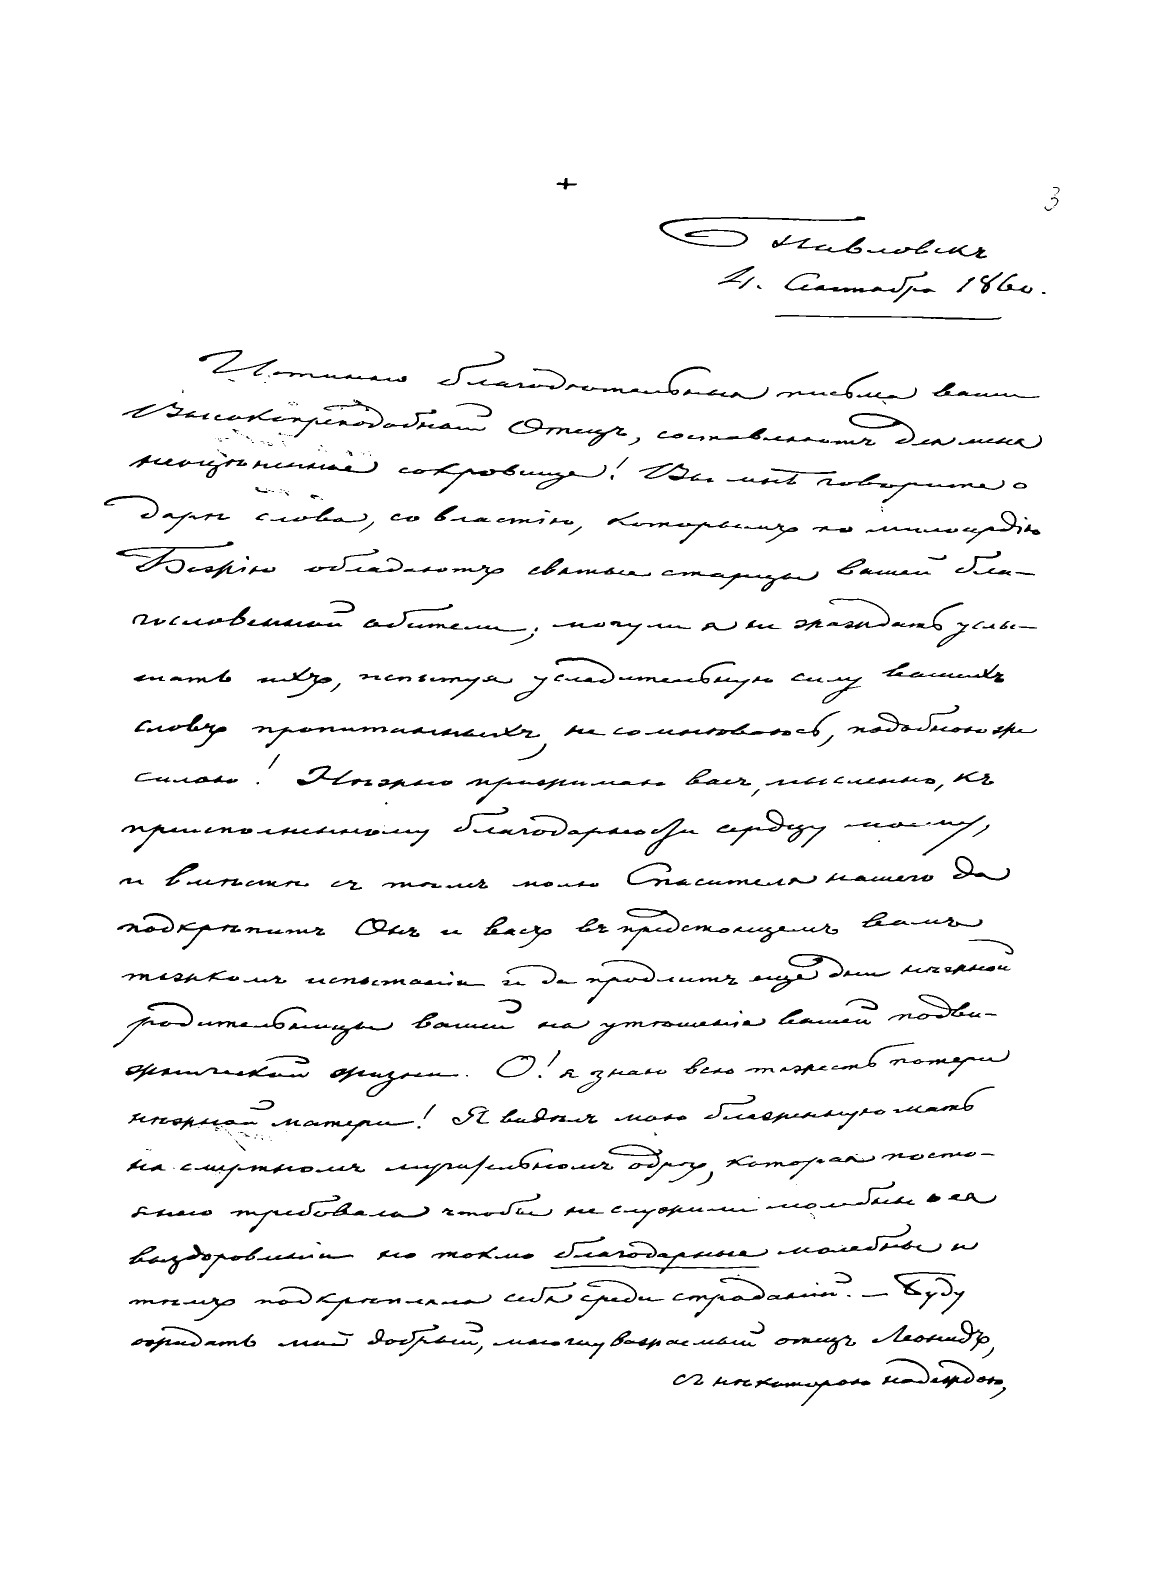 +
3
Г. Павловскъ
4. Сентября 1860.
Истинно благодѣтельныя письма ваши
Высокопреподобный Отецъ, составляютъ для меня
неоцѣненное сокровище! Вы мнѣ говорите о
дарѣ слова, со властію, которымъ по милосердію
Божію обладаютъ святые старцы вашей бла-
гословенной обители; могу ли я не жаждать услы-
шать ихъ, испытуя усладительную силу вашихъ
словъ пропитанныхъ, не сомнѣваюсь, подобною же
силою! Нѣжно прижимаю васъ, мысленно, къ
преисполненному благодарности сердцу моему,
и вмѣстѣ съ тѣмъ молю Спасителя нашего да
подкрѣпитъ Онъ и васъ въ предстоящемъ вамъ
тяжкомъ испытаніи и да продлитъ еще дни нѣжной
родительницы вашей на утѣшеніе вашей подви-
жнической жизни. О! я знаю всю тяжесть потери
нѣжной матери! Я видѣлъ мою блаженную мать
на смертномъ мучительномъ одрѣ, которая посто-
янно требовала чтобы не служили молебны о ея
выздоровленіи но токмо благодарные молебны и
тѣмъ подкрѣпляла себя среди страданій. — Буду
ожидать мой добрый, многоуважаемый отецъ Леонидъ,
съ нѣкоторою надеждою,